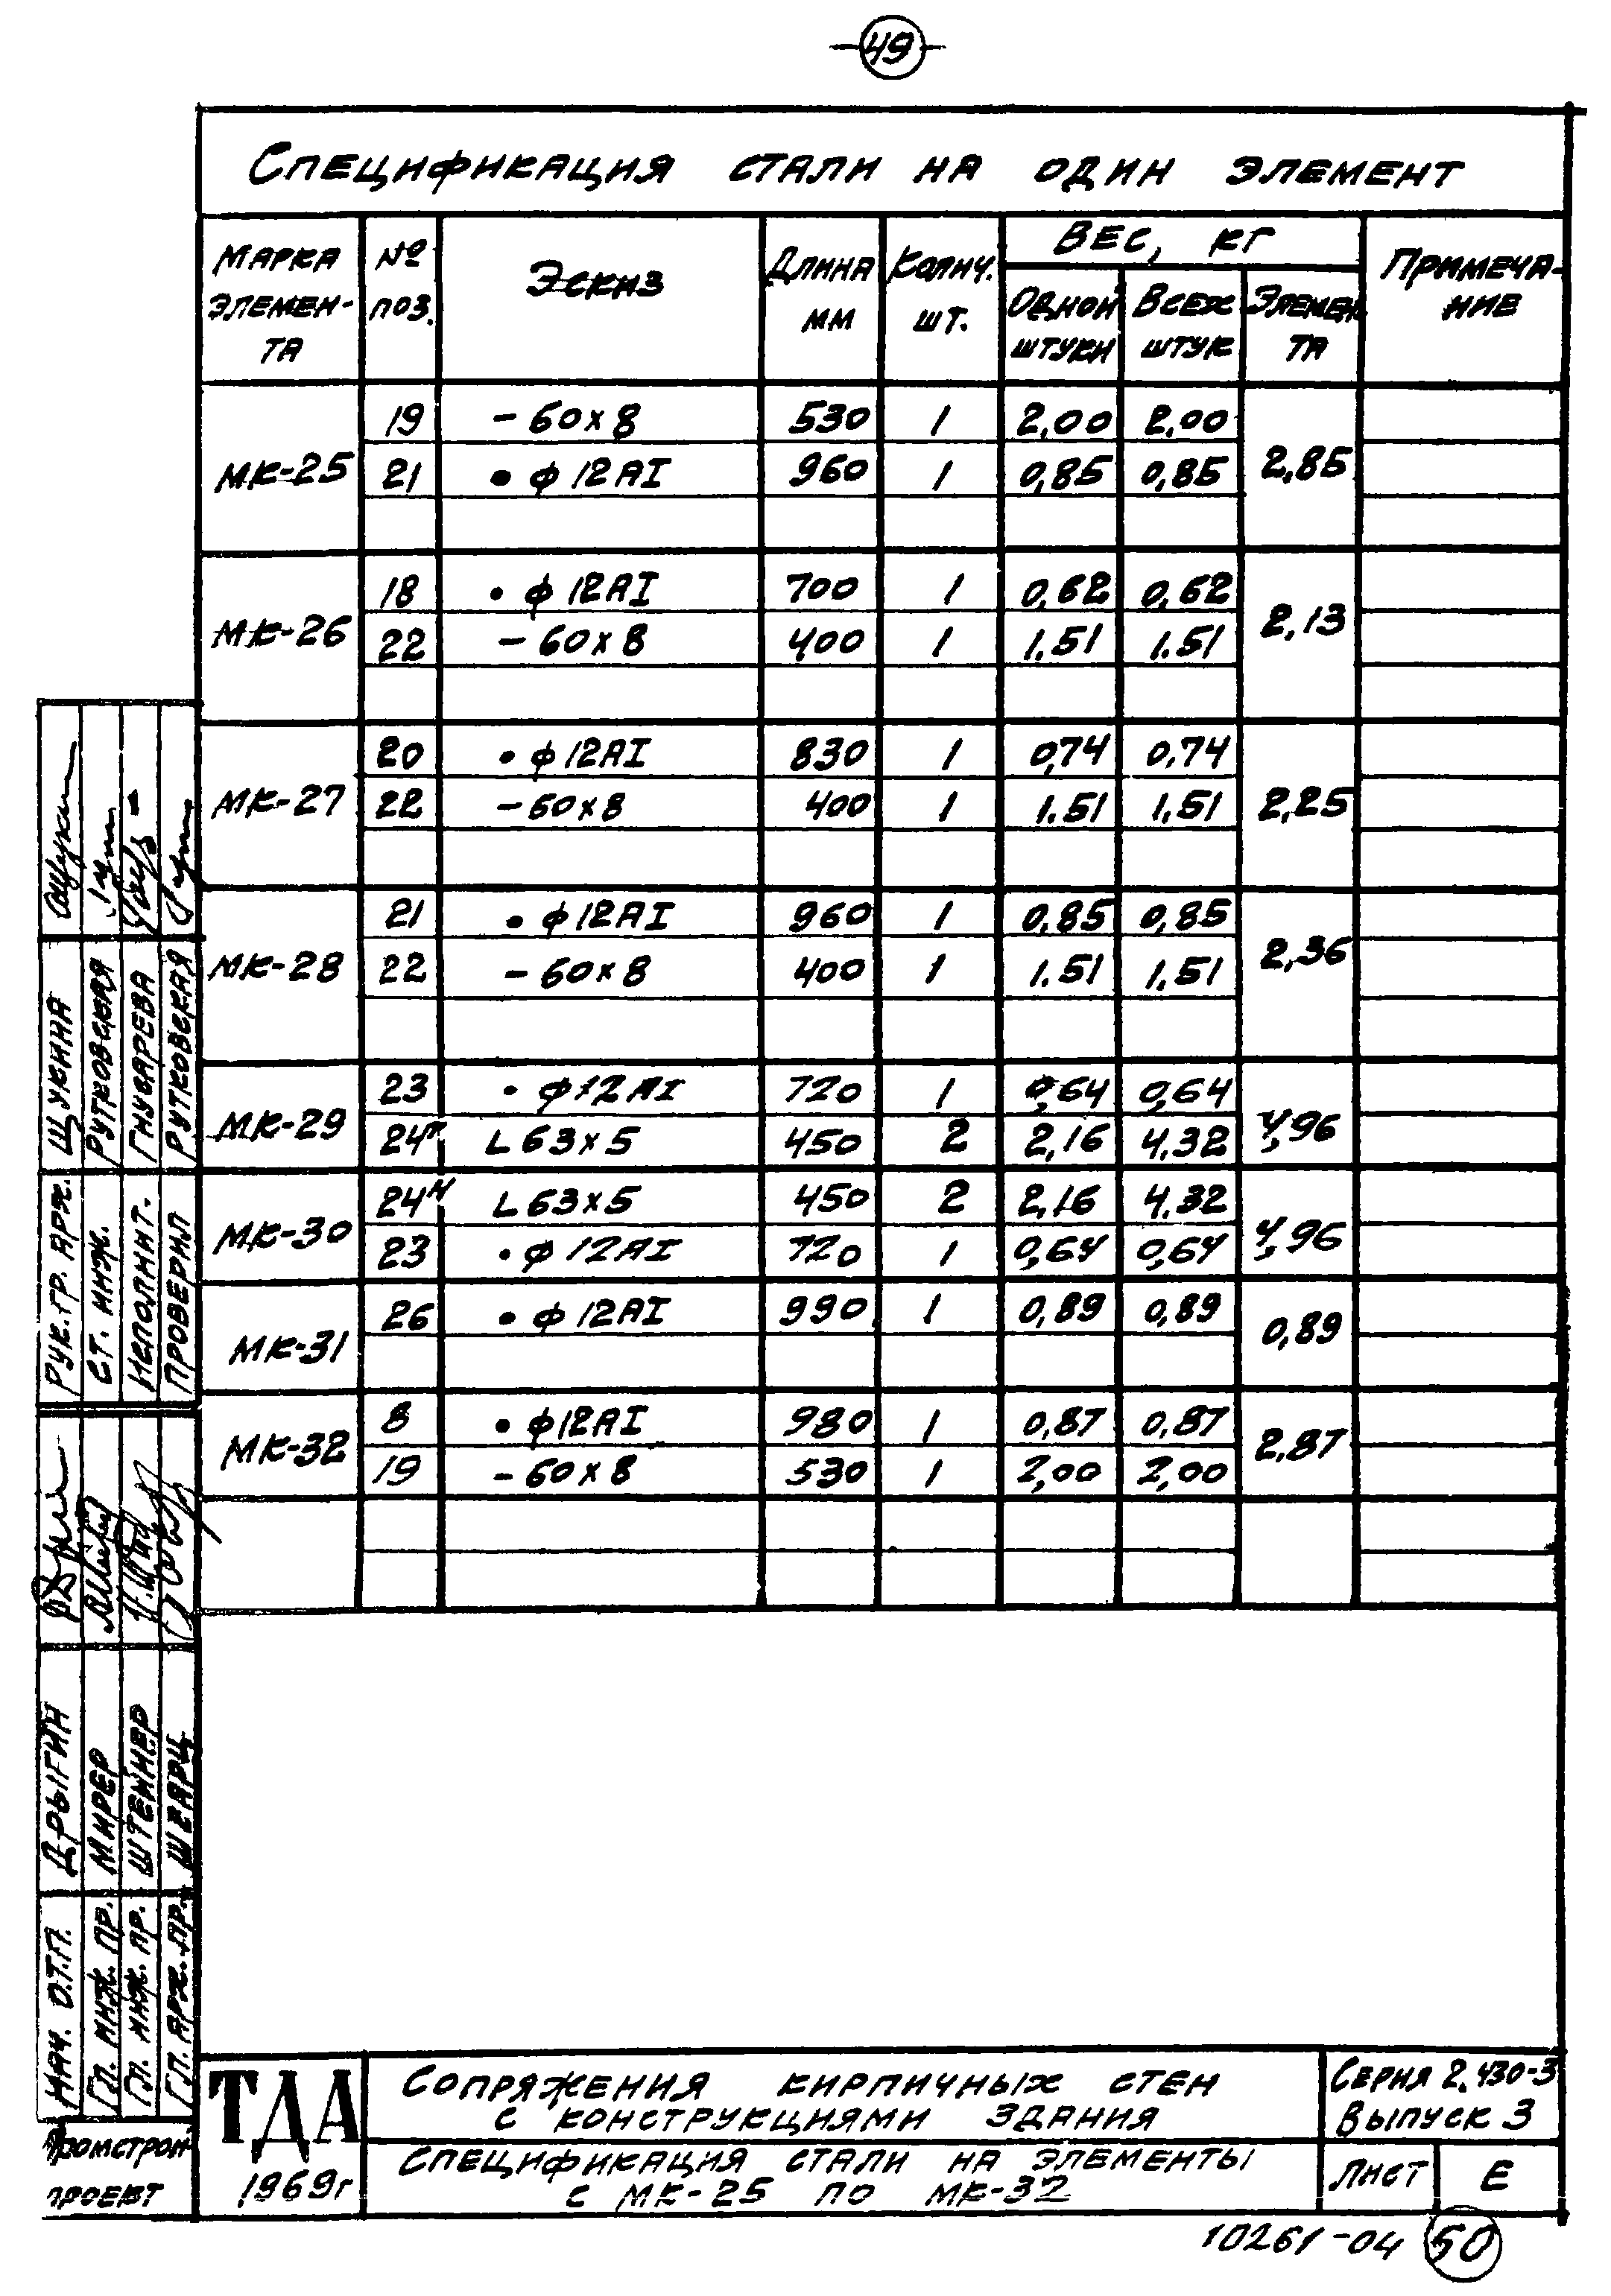 -49-
Спецификация стали на один элемент
Марка элемен-та № поз. Эскиз Длина мм Колич. шт. Вес, кг Примеча-ние
Одной штуки Всех штук Элемен та
МК-25 19 - 60x8 530 1 2,00 2,00 2,85
21 • ф 12АI 960 1 0,85 0,85
МК-26 18 • ф 12АI 700 1 0,62 0,62 2,13
22 - 60x8 400 1 1.51 1.51
МК-27 20 • ф 12АI 830 1 0,74 0,74 2,25
22 - 60x8 400 1 1.51 1,51
МК-28 21 • ф 12АI 960 1 0,85 0,85 2,36
22 - 60x8 400 1 1.51 1.51
МК-29 23 • ф 12АI 720 1 0,64 0,64 4,96
24п L 63x5 450 2 2,16 4.32
МК-30 24н L 63x5 450 2 2,16 4.32 4,96
23 • ф 12АI 720 1 0,64 0,64
МК-31 26 • ф 12АI 990 1 0,89 0,89 0,89
МК-32 8 • ф12АI 980 1 0,87 0,87 2,87
19 - 60x8 530 1 2,00 2,00
Рук. гр. арх. Щукина
Ст. инж. Рутковская
Исполнит. Гнусарева
Проверил Рутковская
Нач. О.Т.П. Дрыгин
Гл. инж. пр. Мирер
Гл. инж. пр. Штейнер
Гл. арх. пр. Шварц
Промстрой
проект
ТДА
1969г
Сопряжения кирпичных стен
с конструкциями здания
Спецификация стали на элементы
с МК-25 по МК-32
Серия 2.430-3
Выпуск 3
Лист Е
10261-04 50